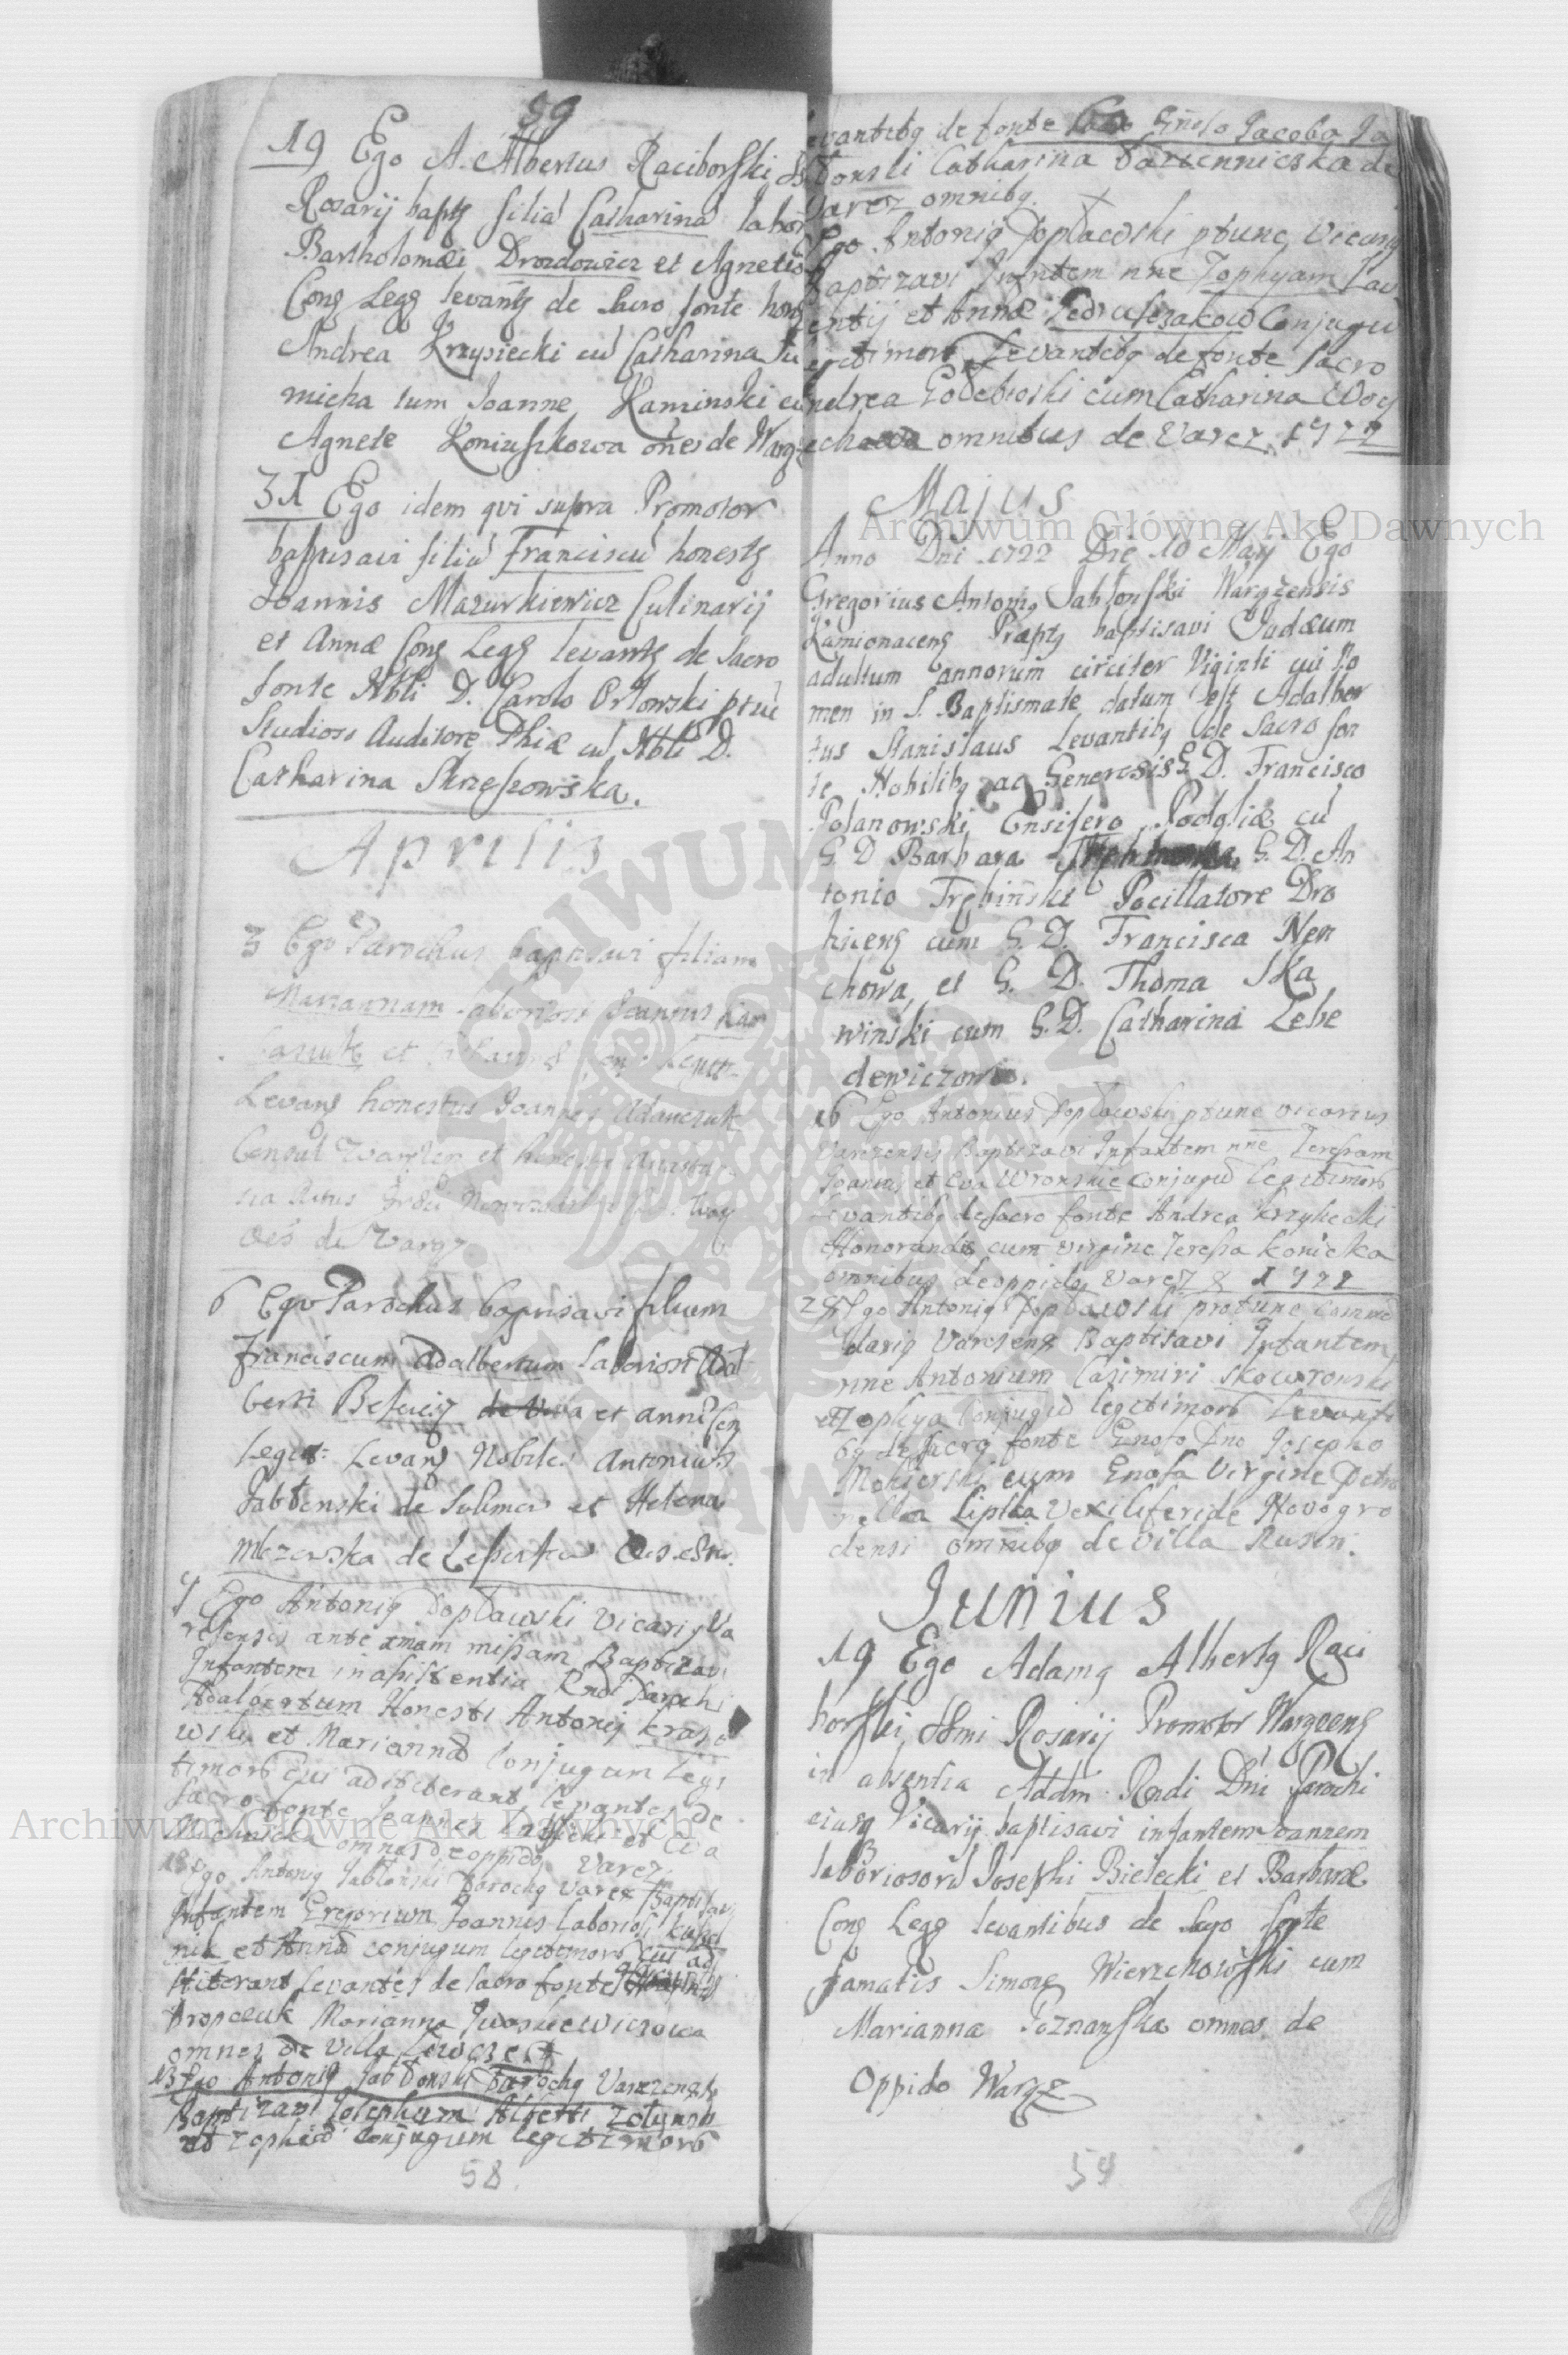 59
19 Ego A. Albertus Raciborski SS.
Rosarij baptz filiā Catharinā labor
Bartholomæi Drozdowicz et Agnetis
Conz Legz levantz de sacro fonte honz
Andrea Krzysiecki cū Catharina Tu
micka tum Joanne Kaminski cū
Agnete Koniuszkowa oñes de Waręz
31 Ego idem qui supra Promotor
baptisavi filiū Franciscū honestz
Joannis Mazurkiewicz Culinarij
et Annæ Conz Legz levantz de Sacro
fonte Nbli D. Carolo Orłowski ptūc
Studioso Auditore Phiæ cū Nbli D.
Catharina Skrzeszowska.
Aprilis
3 Ego Parochus baptisavi filiam
Mariannam laboriosi Joannis
et
Levanz honestus Joannes Adamczuk
Consul Waręzen et honesta
Oēs de Waręz
6 Ego Parochus baptisavi filium
Franciscum Adalbertum laboriosi Adal
berti et Annæ Con
legit: Levanz Nobiles Antonius
Jabłonski de Sulimow et Helena
de
9 Ego Antonig Popławski Vicarig Va
resensis ante xmam missam Baptizavi
Infantem in assistentia Rndi Parochi
Adalbertum Honesti Antonij Kraso
wski et Mariannæ Conjugum Legi
timorū Cui adstiterant levantes de
Sacro fonte Joannes et Eva
omnes de oppido Varez
13 Ego Antonig Jabłonski Parochg Varez Baptisavi
Infantem Gregorium Joannis Laboriosi
nik et Annæ conjugum legitimorū cui ad
stiterant levantes de sacro fonte
Propczuk Marianna Iwaskiewiczowa
omnes de Villa
13 Ego Antonig Jabłonski Parochg Varezensis
Baptizavi Josephum Alberti Zolynski
et Zophiæ conjugum legitimorū
58
levantibg de fonte Sacro Gnoso Jacobo Ja
błonski Catharina de
Varez omnibg.
Ego Antonig Popławski ptunc Vicarig
Baptizavi Infantem nne Zophyam Lau
rentij et Annæ Conjugū
Legitimorū Levantibg de fonte Sacro
Andrea Gołębioski cum Catharina Woy
omnibus de Varez 1722
Majus
Anno Dni 1722 Die 10 Maij Ego
Gregorius Antonig Jabłonski Waręzensis
Kamionacenz Præptg baptisavi Judæum
adultum annorum circiter Viginti cui No
men in S. Baptismate datum est Adalber
tus Stanislaus Levantibg de Sacro fon
te Nobilibg ac Generosis G. D. Francisco
Polanowski Ensifero Podoliæ cū
G. D. Barbara G. D. An
tonio Trębiński Pocillatore Dro
hicenz cum G. D. Francisca Nem
chowa, et G. D. Thoma Ska
winski cum G. D. Catharina Lebe
dewiczowa.
16 Ego Antonius Popławski ptunc vicarius
Varezensis Baptizavi Infantem nne Teresam
Joannis et Eva Wronskie Conjugū Legitimorū
Levantibg de sacro fonte Andrea Krzysiecki
Honorandis cum virgine Teresia Konicka
omnibus de oppido Varez 1722
25 Ego Antonig Popławski protunc Comme
darig Varesens Baptisavi Infantem
nne Antonium Casimiri Skowronski
et Zophya Conjugū legitimorū Levanti
bg de sacro fonte Gnoso Dno Josepho
cum Gnosa Virgine Petro
nella Lipska Vexiliferide Novogro
densi omnibg de villa Rusin.
Junius
19 Ego Adamg Albertg Raci
borski SSmi Rosarij Promotor Waręcenz
in absentia Addm Rndi Dni Parochi
eiusq Vicarij baptisavi infantem Joannem
laboriosorū Josephi Bielecki et Barbaræ
Conz Legz levantibus de sacro fonte
famatis Simone Wierzchowski cum
Marianna Poznanska omnes de
Oppido Waręz
59
Archiwum Główne Akt Dawnych
Archiwum Główne Akt Dawnych